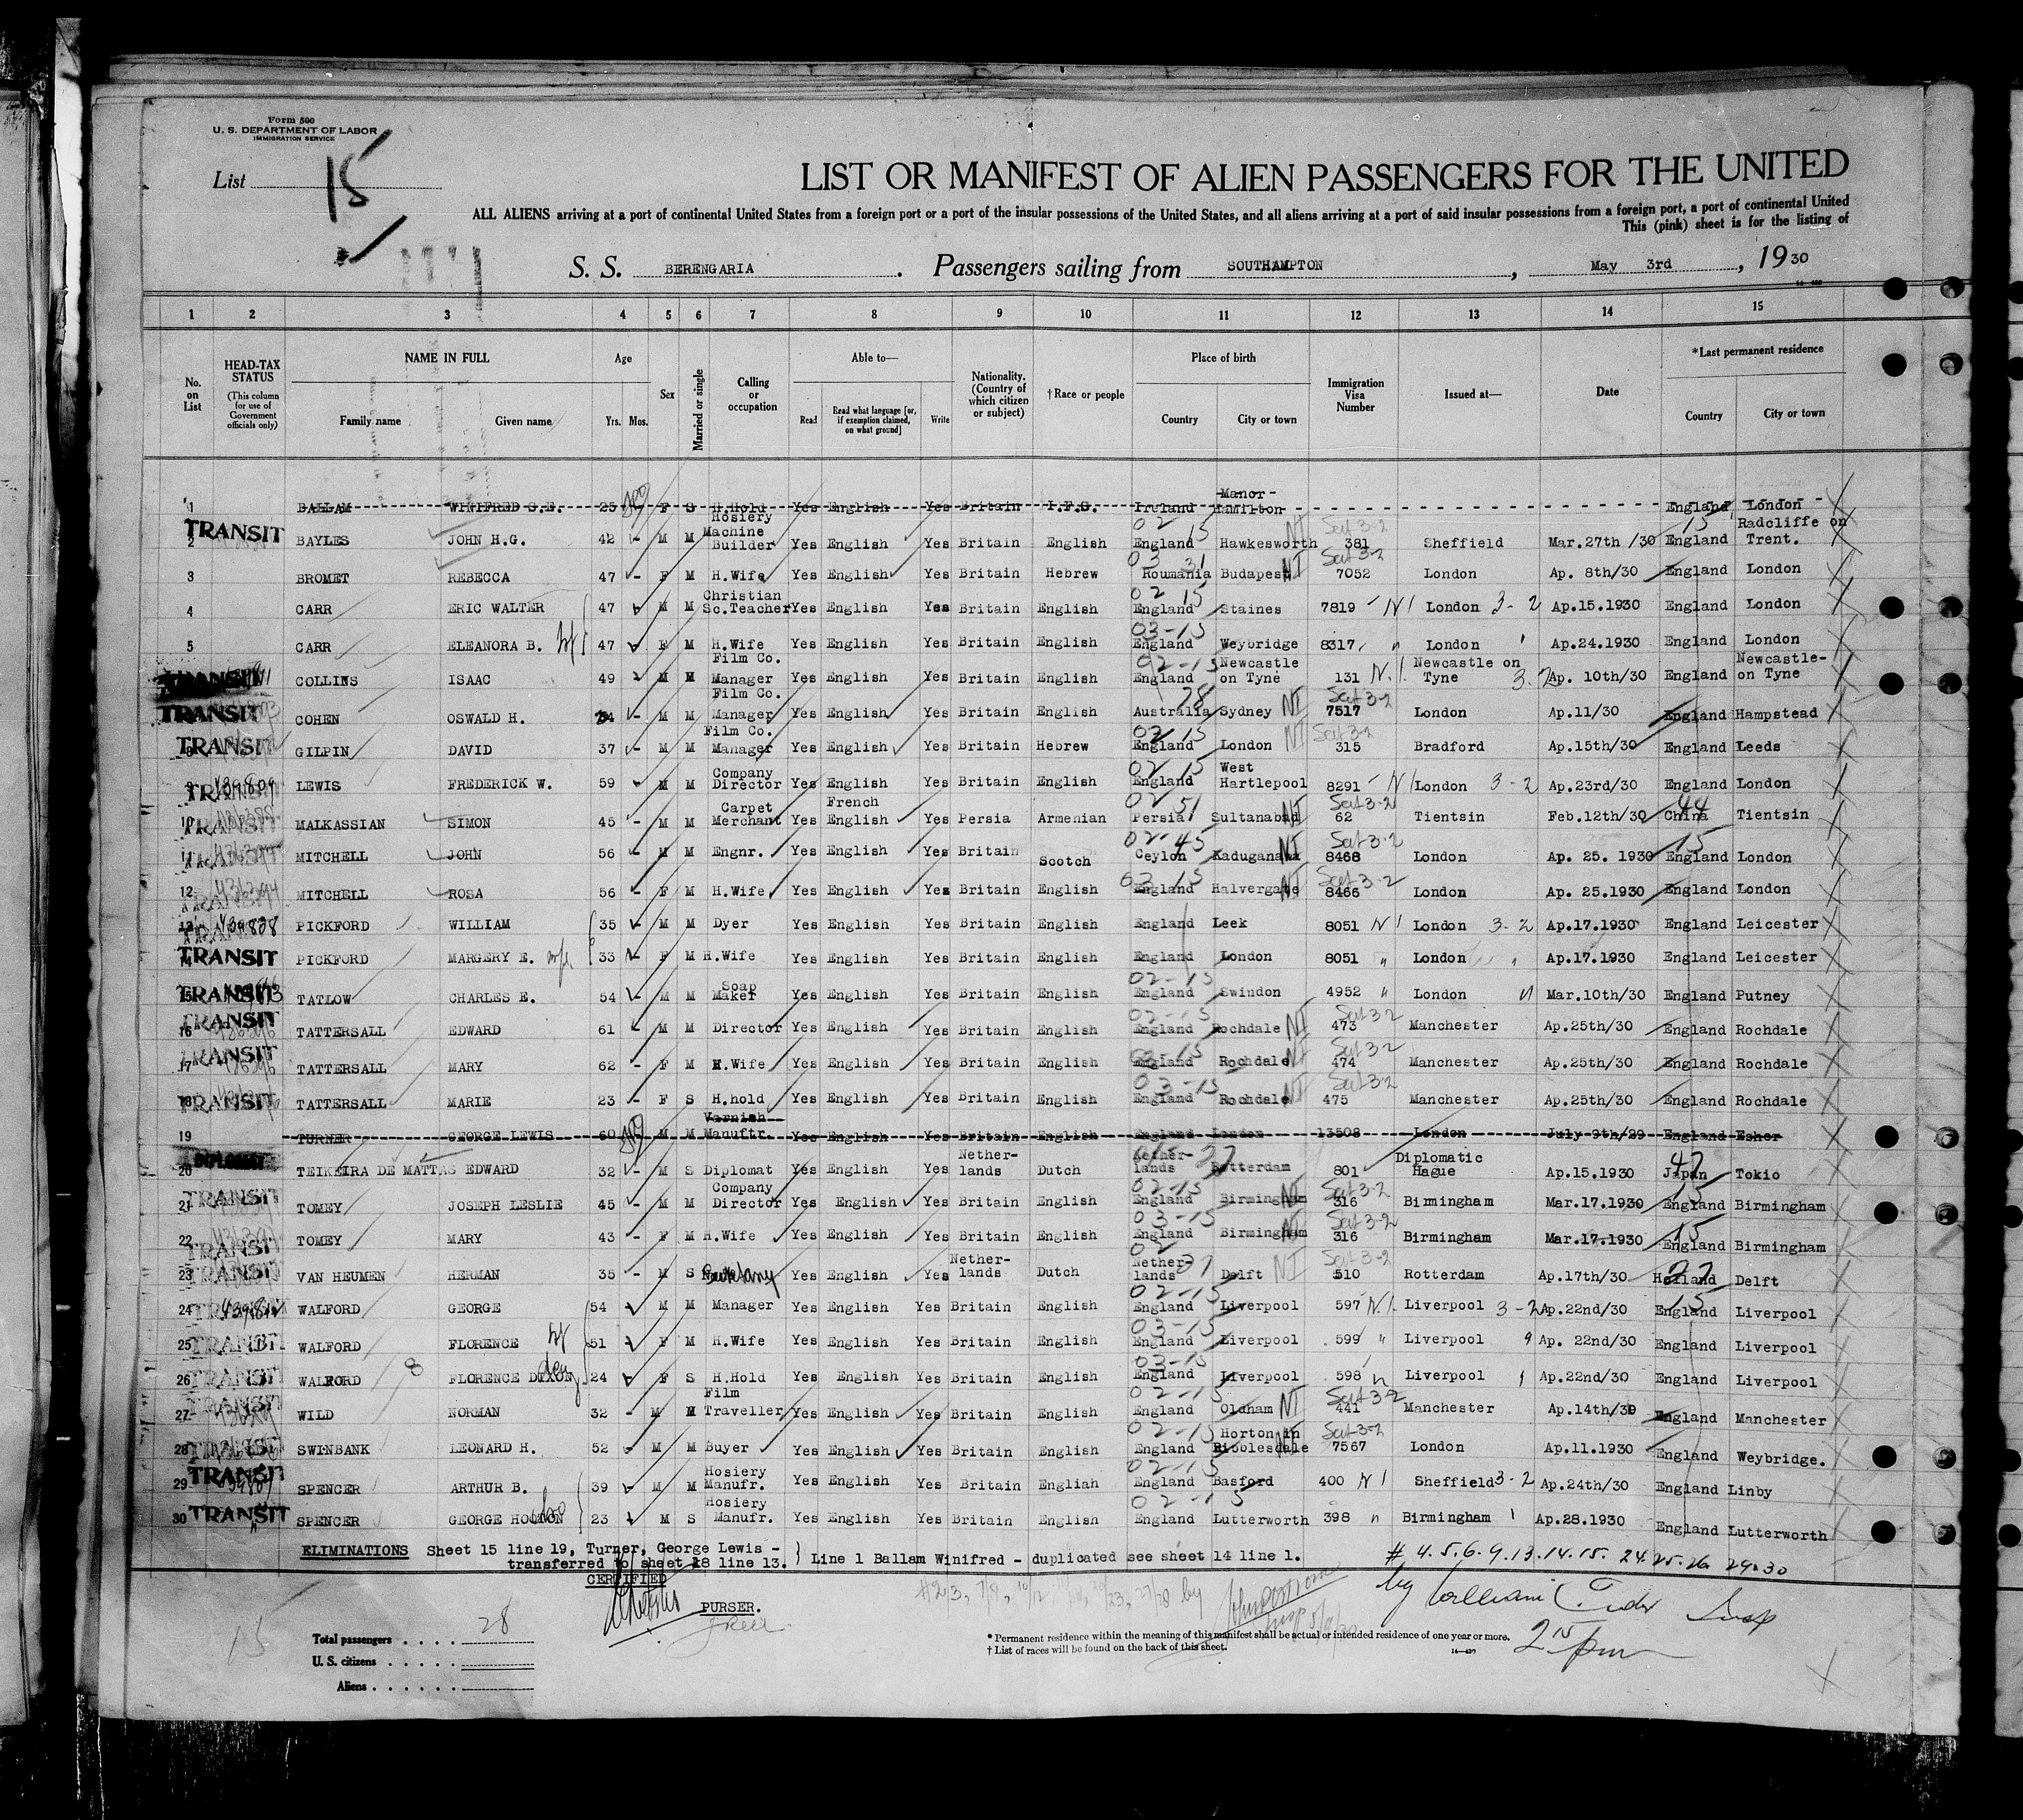 Form 500
U. S. DEPARTMENT OF LABOR
IMMIGRATION SERVICE
List 15
LIST OR MANIFEST OF ALIEN PASSENGERS FOR THE UNITED
ALL ALIENS arriving at a port of continental United States from a foreign port or a port of the insular possessions of the United States, and all aliens arriving at a port of said insular possessions from a foreign port, a port of continental United
This (pink) sheet is for the listing of
S. S. BERENGARIA. Passengers sailing from SOUTHAMPTON, May 3rd, 19 30
1 2 3 4 5 6 7 8 9 10 11 12 13 14 15
No. on List HEAD-TAX STATUS (This column for use of Government officials only) NAME IN FULL Family name Given name Age Yrs. Mos. Sex Married or single Calling or occupation Able to— Read Read what language [or, if exemption claimed, on what ground] Write Nationality. (Country of which citizen or subject) †Race or people Place of birth Country City or town Immigration Visa Number Issued at— Date *Last permanent residence Country City or town
1 BALLAM WINIFRED S.E. 25 F S H.Hold Yes English Yes Britain I.F.S. Ireland Manor-Hamilton England London
TRANSIT 2 BAYLES JOHN H.G. 42 - M M Hosiery Machine Builder Yes English Yes Britain English 02 15 England Hawkesworth NI Sect 3-2 381 Sheffield Mar.27th/30 15 England Radcliffe on Trent.
3 BROMET REBECCA 47 - F M H.Wife Yes English Yes Britain Hebrew 03 31 Roumania Budapest NI Sect 3-2 7052 London Ap. 8th/30 England London
4 CARR ERIC WALTER 47 M M Christian Sc.Teacher Yes English Yes Britain English 02 15 England Staines 7819 N I London 3-2 Ap.15.1930 England London
5 CARR ELEANORA B. wf 47 F M H.Wife Yes English Yes Britain English 03-15 England Weybridge 8317 " London Ap.24.1930 England London
TRANSIT COLLINS ISAAC 49 M M Film Co. Manager Yes English Yes Britain English 02-15 England Newcastle on Tyne 131 N.I. Newcastle on Tyne 3-2 Ap. 10th/30 England Newcastle-on Tyne
TRANSIT COHEN OSWALD H. - M M Film Co. Manager Yes English Yes Britain English 28 Australia Sydney NI Sect 3-2 7517 London Ap.11/30 England Hampstead
TRANSIT 8 GILPIN DAVID 37 - M M Film Co. Manager Yes English Yes Britain Hebrew 02 15 England London NI Sect 3-2 315 Bradford Ap.15th/30 England Leeds
TRANSIT 9 439809 LEWIS FREDERICK W. 59 M M Company Director Yes English Yes Britain English 02 15 England West Hartlepool 8291 - N I London 3-2 Ap.23rd/30 England London
TRANSIT 10 MALKASSIAN SIMON 45 - M M Carpet Merchant Yes French English Yes Persia Armenian 02 51 Persia Sultanabad NI Sect 3-2 62 Tientsin Feb.12th/30 44 China Tientsin
11 MITCHELL JOHN 56 - M M Engnr. Yes English Yes Britain Scotch 02-45 Ceylon Kaduganawa NI Sect 3-2 8468 London Ap. 25. 1930 15 England London
12 MITCHELL ROSA 56 - F M H.Wife Yes English Yes Britain English 03 15 England Halvergate NI Sect 3-2 8466 London Ap. 25.1930 England London
13 439808 PICKFORD WILLIAM 35 M M Dyer Yes English Yes Britain English England Leek 8051 N I London 3-2 Ap.17.1930 England Leicester
TRANSIT 14 PICKFORD MARGERY E. wf 33 - F M H.Wife Yes English Yes Britain English England London 8051 " London " Ap.17.1930 England Leicester
TRANSIT 15 TATLOW CHARLES E. 54 - M M Soap Maker Yes English Yes Britain English 02-15 England Swindon 4952 " London Mar.10th/30 England Putney
TRANSIT 16 TATTERSALL EDWARD 61 - M M Director Yes English Yes Britain English 02-15 England Rochdale NI Sect 3-2 473 Manchester Ap.25th/30 England Rochdale
TRANSIT 17 TATTERSALL MARY 62 - F M H.Wife Yes English Yes Britain English 03-15 England Rochdale NI Sect 3-2 474 Manchester Ap.25th/30 England Rochdale
TRANSIT 18 TATTERSALL MARIE 23 - F S H.hold Yes English Yes Britain English 03-15 England Rochdale NI Sect 3-2 475 Manchester Ap.25th/30 England Rochdale
19 TURNER GEORGE LEWIS 60 M M Varnish Manuftr. Yes English Yes Britain English England London 13508 London July 9th/29 England Esher
DIPLOMAT 20 TEIXEIRA DE MATTAS EDWARD 32 - M S Diplomat Yes English Yes Nether-lands Dutch 37 Nether-lands Rotterdam 801 Diplomatic Hague Ap.15.1930 47 Japan Tokio
TRANSIT 21 TOMEY JOSEPH LESLIE 45 - M M Company Director Yes English Yes Britain English 02-15 England Birmingham NI Sect 3-2 316 Birmingham Mar.17.1930 15 England Birmingham
TRANSIT 22 TOMEY MARY 43 - F M H.Wife Yes English Yes Britain English 03-15 England Birmingham NI Sect 3-2 316 Birmingham Mar.17.1930 15 England Birmingham
TRANSIT 23 VAN HEUMEN HERMAN 35 - M S Secretary Yes English Yes Nether-lands Dutch 02 37 Nether-lands Delft NI Sect 3-2 510 Rotterdam Ap.17th/30 37 Holland Delft
24 WALFORD GEORGE 54 M M Manager Yes English Yes Britain English 02-15 England Liverpool 597 N.I. Liverpool 3-2 Ap.22nd/30 15 England Liverpool
TRANSIT 25 WALFORD FLORENCE wf 51 F M H.Wife Yes English Yes Britain English 03-15 England Liverpool 599 " Liverpool Ap. 22nd/30 England Liverpool
TRANSIT 26 WALFORD 8 FLORENCE DIXON 24 F S H.Hold Yes English Yes Britain English 03-15 England Liverpool 598 Liverpool Ap.22nd/30 England Liverpool
27 WILD NORMAN 32 - M M Film Traveller Yes English Yes Britain English 02-15 England Oldham NI Sect 3-2 441 Manchester Ap.14th/30 England Manchester
28 SWINBANK LEONARD H. 52 - M M Buyer Yes English Yes Britain English 02-15 England Horton in Ribblesdale NI Sect 3-2 7567 London Ap.11.1930 England Weybridge.
TRANSIT 29 SPENCER ARTHUR B. 39 - M M Hosiery Manufr. Yes English Yes Britain English 02-15 England Basford 400 N I Sheffield 3-2 Ap.24th/30 England Linby
30 TRANSIT SPENCER GEORGE 23 M S Hosiery Manufr. Yes English Yes Britain English 02-15 England Lutterworth 398 " Birmingham Ap.28.1930 England Lutterworth
ELIMINATIONS Sheet 15 line 19, Turner, George Lewis -
transferred to sheet 18 line 13. Line 1 Ballam Winifred - duplicated see sheet 14 line 1. # 4.5.6.9.13.14.15. 24.25.26 29.30
CERTIFIED
PURSER.
by William
2 15 pm
15
Total passengers . . . . 28
U. S. citizens . . . . .
Aliens . . . . .
* Permanent residence within the meaning of this manifest shall be actual or intended residence of one year or more.
† List of races will be found on the back of this sheet.